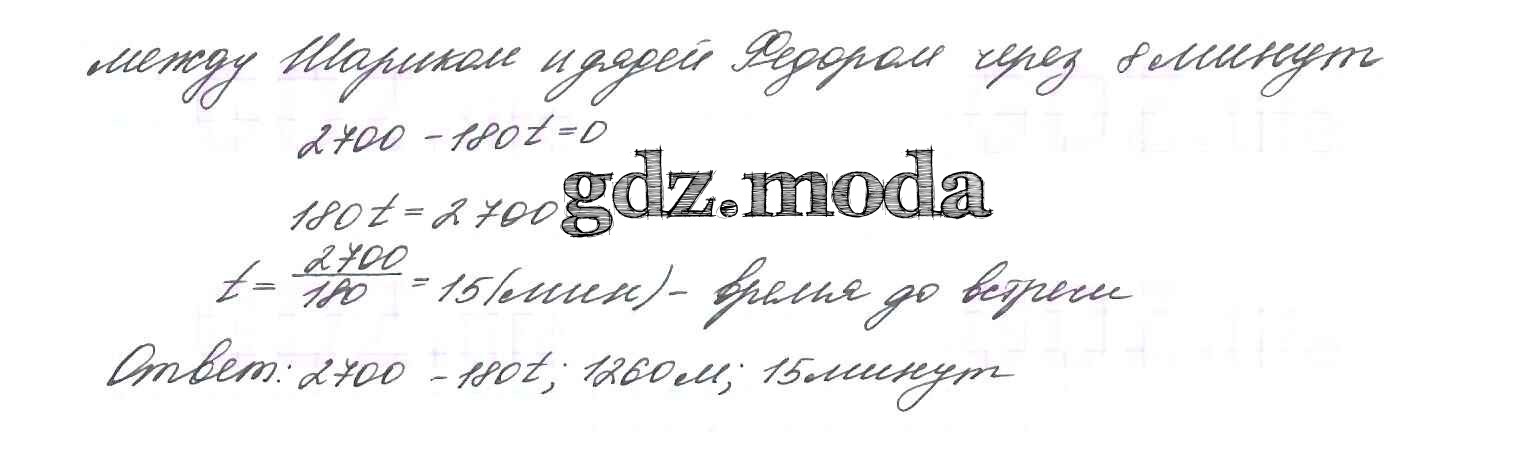 между Шариком и дядей Федором через 8 минут
2700 - 180t = 0
gdz.moda
180t = 2700
t = 2700/180 = 15 (мин) - время до встречи
Ответ: 2700 - 180t; 1260м; 15 минут